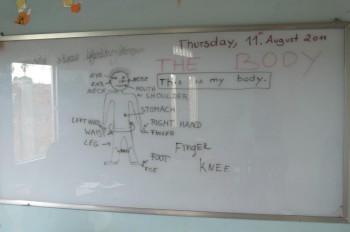 Thursday, 11th August 2011
THE BODY
This is my body.
EYE
EAR
NECK
NOSE
MOUTH
SHOULDER
STOMACH
LEFT HAND
RIGHT HAND
WAIST
FINGER
LEG
KNEE
FOOT
TOE
FINGER
KNEE